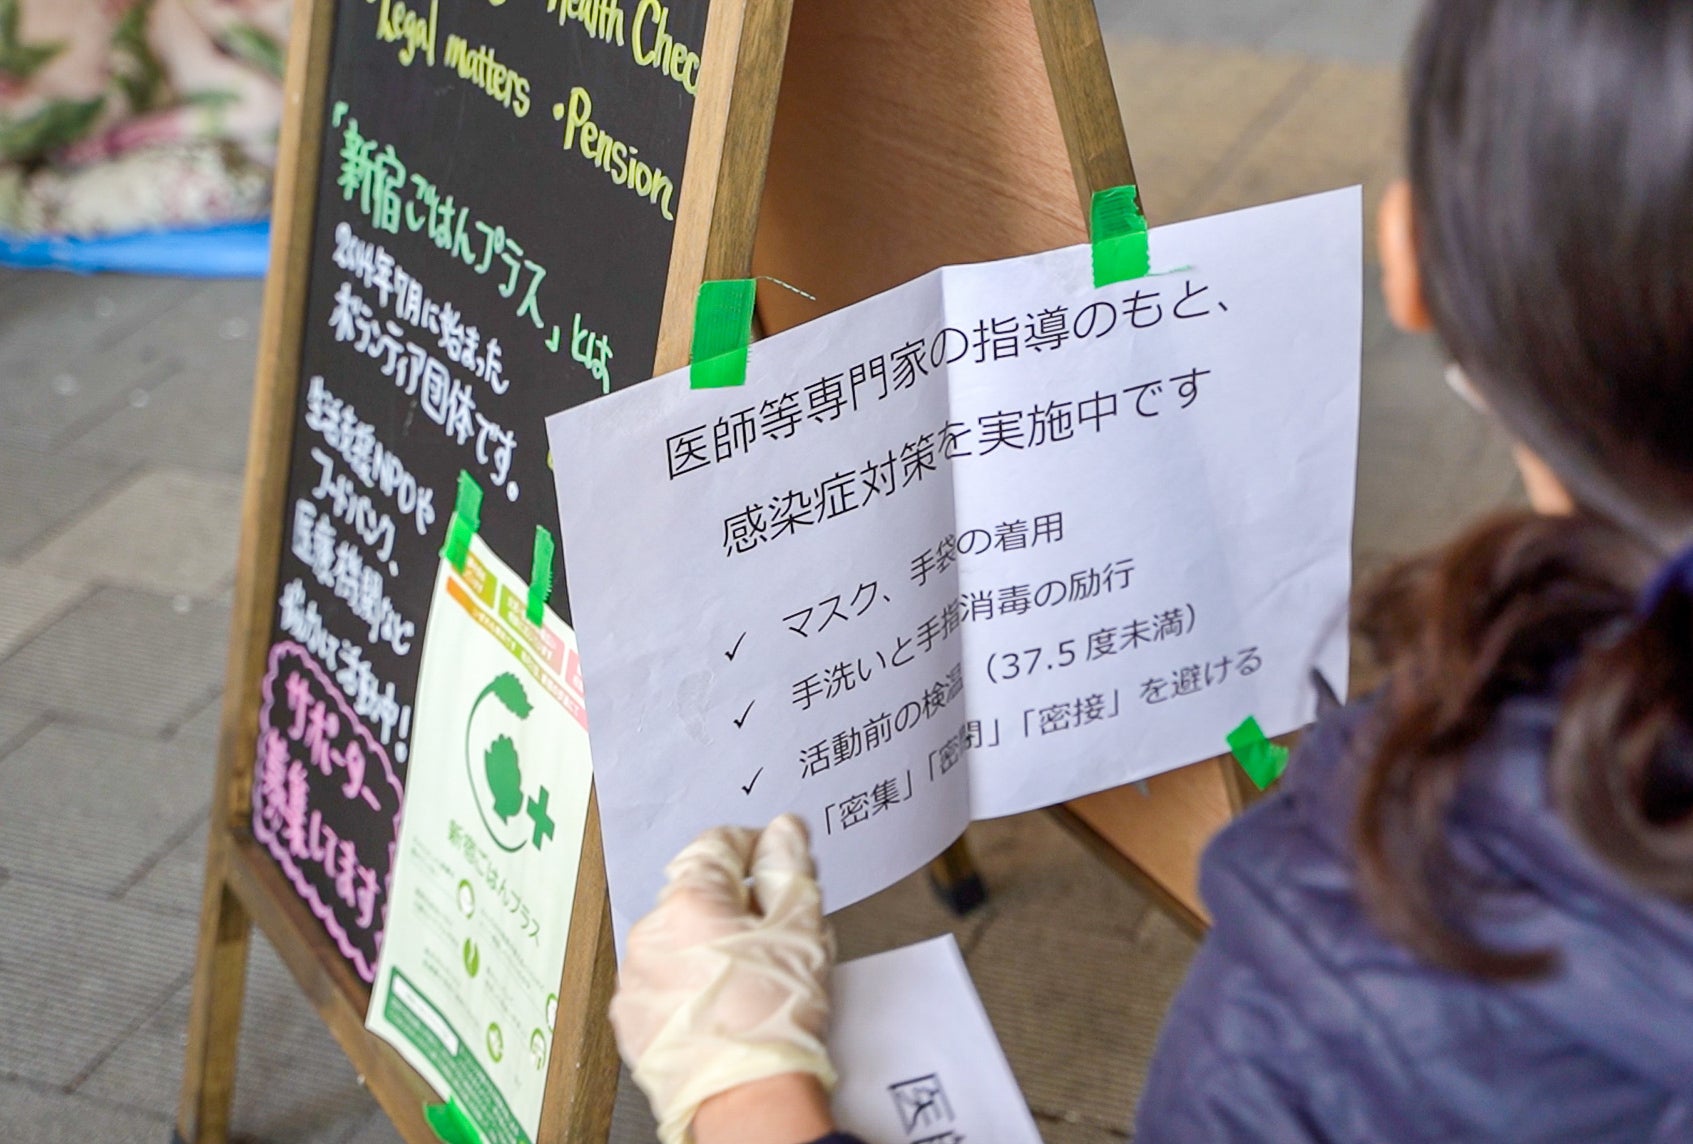 Health Chec
Legal matters ・Pension
「新宿ごはんプラス」とは、
2014年7月に始まった
ボランティア団体です。
生活支援NPOや
フードバンク、
医療機関など
サポーター
募集してます
新宿ごはんプラス
医師等専門家の指導のもと、
感染症対策を実施中です
✓ マスク、手袋の着用
✓ 手洗いと手指消毒の励行
✓ 活動前の検温（37.5度未満）
「密集」「密閉」「密接」を避ける
医